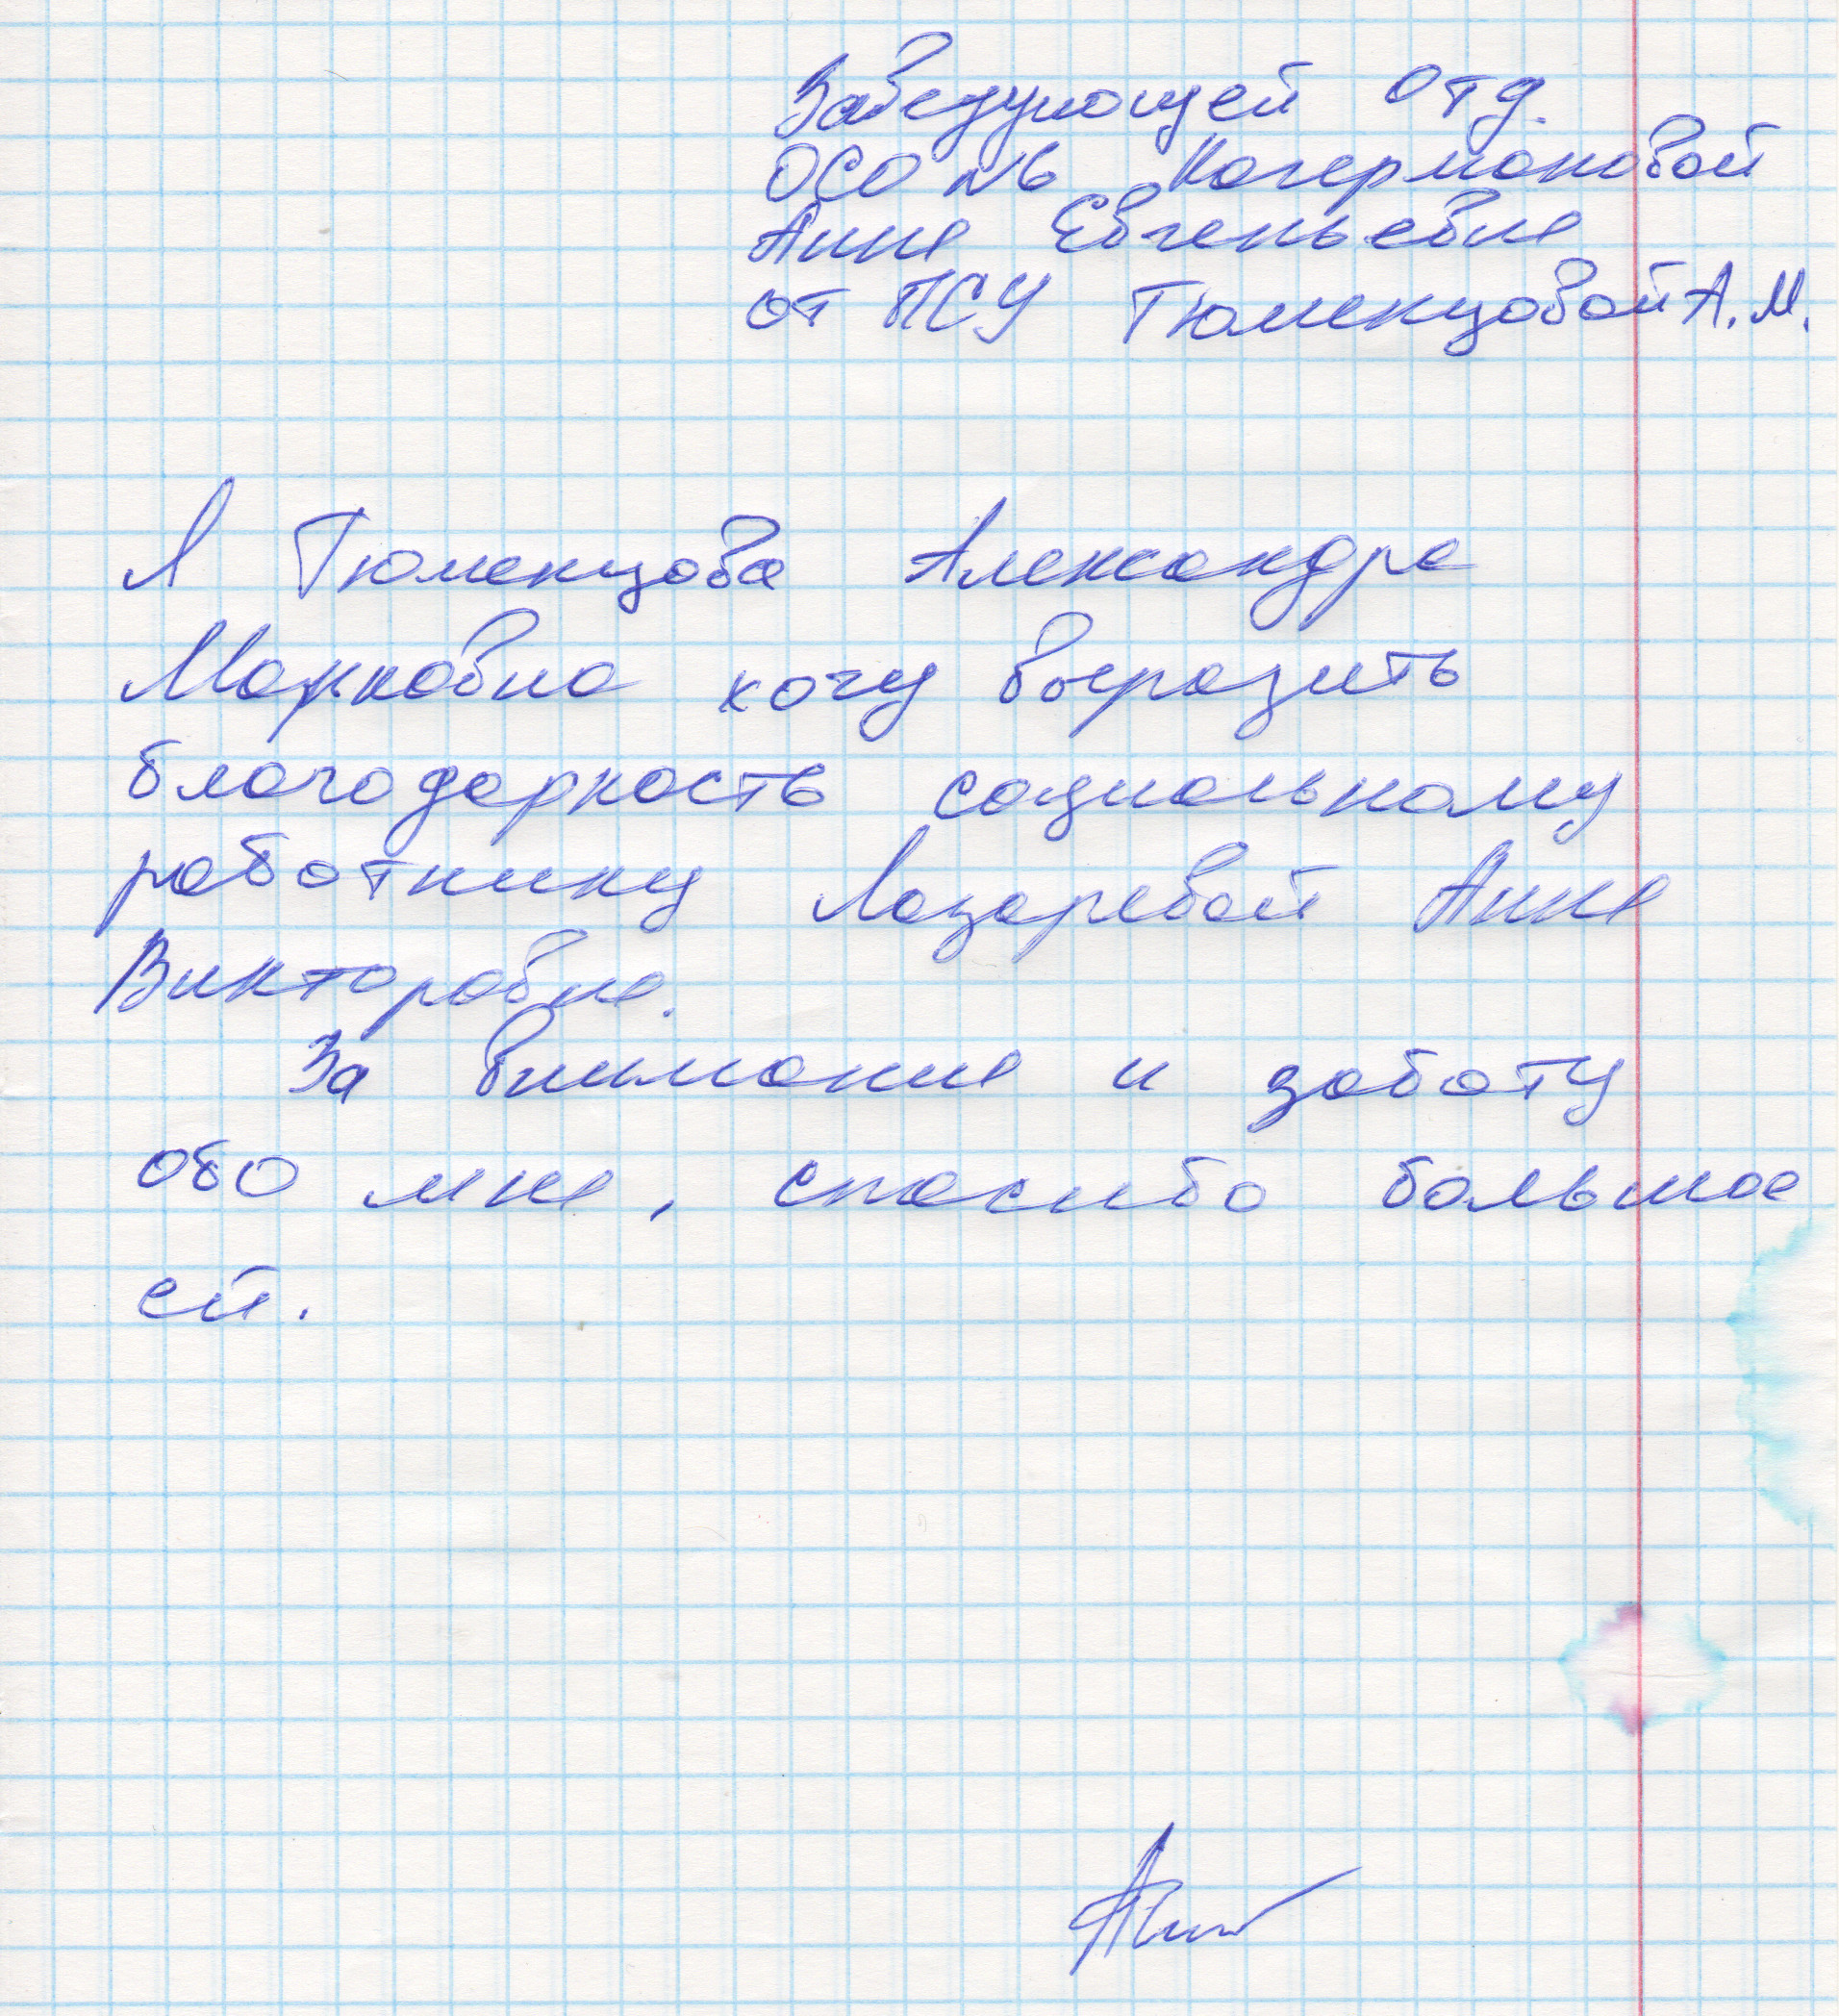 Заведующей отд.
ОСО №6 Кагермановой
Анне Евгеньевне
от ПСУ Тюменцовой А.М.
Я Тюменцова Александра
Марковна хочу выразить
благодарность социальному
работнику Лазаревой Анне
Викторовне.
За внимание и заботу
обо мне, спасибо большое
ей.